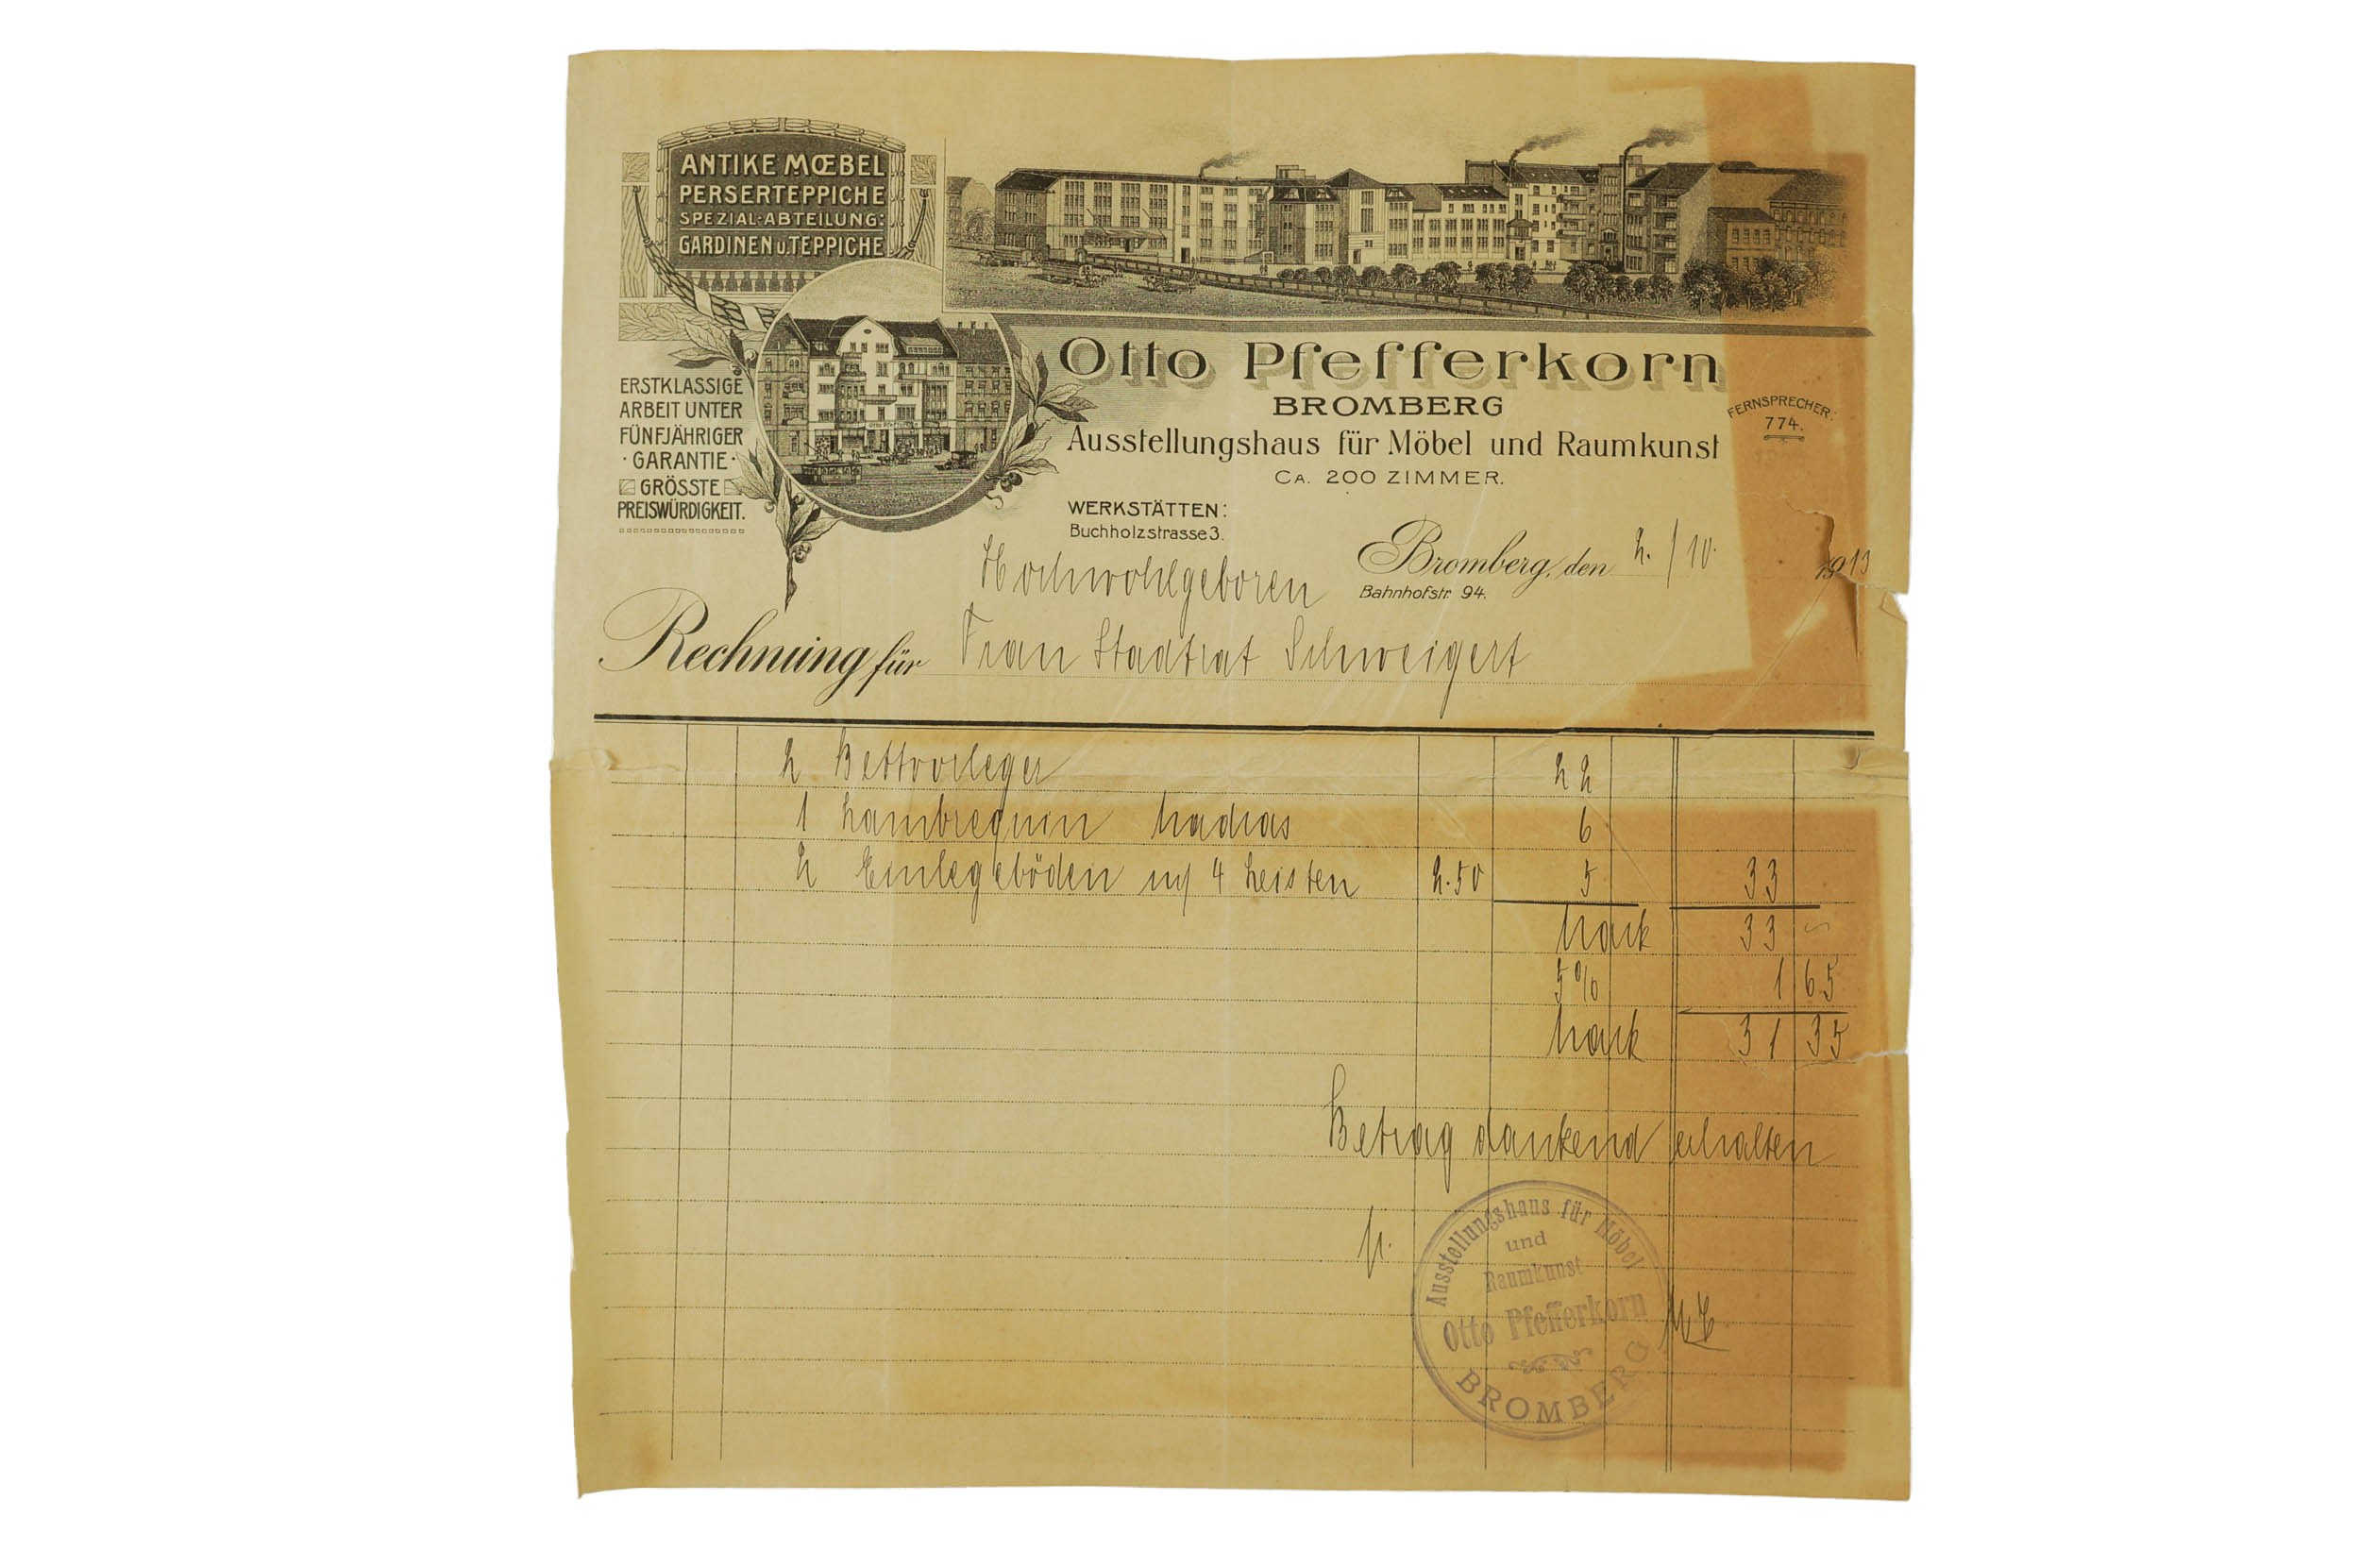 ANTIKE MŒBEL
PERSERTEPPICHE
SPEZIAL-ABTEILUNG:
GARDINEN u. TEPPICHE
ERSTKLASSIGE
ARBEIT UNTER
FÜNFJÄHRIGER
· GARANTIE ·
GRÖSSTE
PREISWÜRDIGKEIT.
Otto Pfefferkorn
Otto Pfefferkorn
BROMBERG
Ausstellungshaus für Möbel und Raumkunst
CA. 200 ZIMMER.
FERNSPRECHER:
774.
WERKSTÄTTEN:
Buchholzstrasse 3.
Bromberg, den 2./10. 1913
Bahnhofstr. 94.
Hochwohlgeboren
Rechnung für Frau Stadtrat Schweigert
2 Bettvorleger 22
1 Lambrequin Madras 6
2 Einlegeböden 4 Leisten 2.50 5 33
Mark 33
5% 1 65
Mark 31 35
Betrag dankend erhalten
p.
Ausstellungshaus für Möbel
und
Raumkunst
Otto Pfefferkorn
BROMBERG